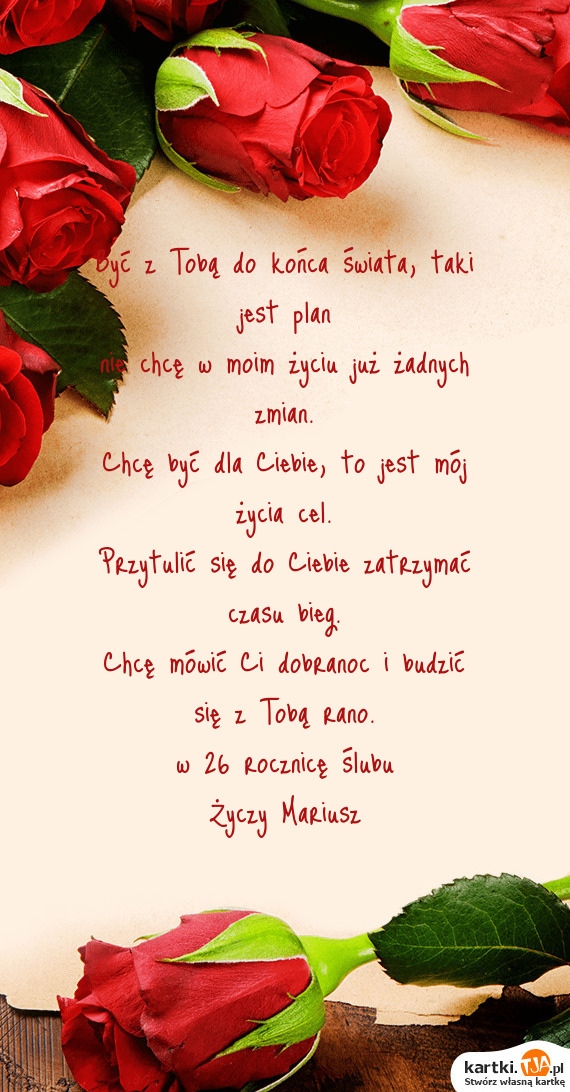 Być z Tobą do końca świata, taki
jest plan
nie chcę w moim życiu już żadnych
zmian.
Chcę być dla Ciebie, to jest mój
życia cel.
Przytulić się do Ciebie zatrzymać
czasu bieg.
Chcę mówić Ci dobranoc i budzić
się z Tobą rano.
w 26 rocznicę ślubu
Życzy Mariusz
kartki.TJA.pl
Stwórz własną kartkę